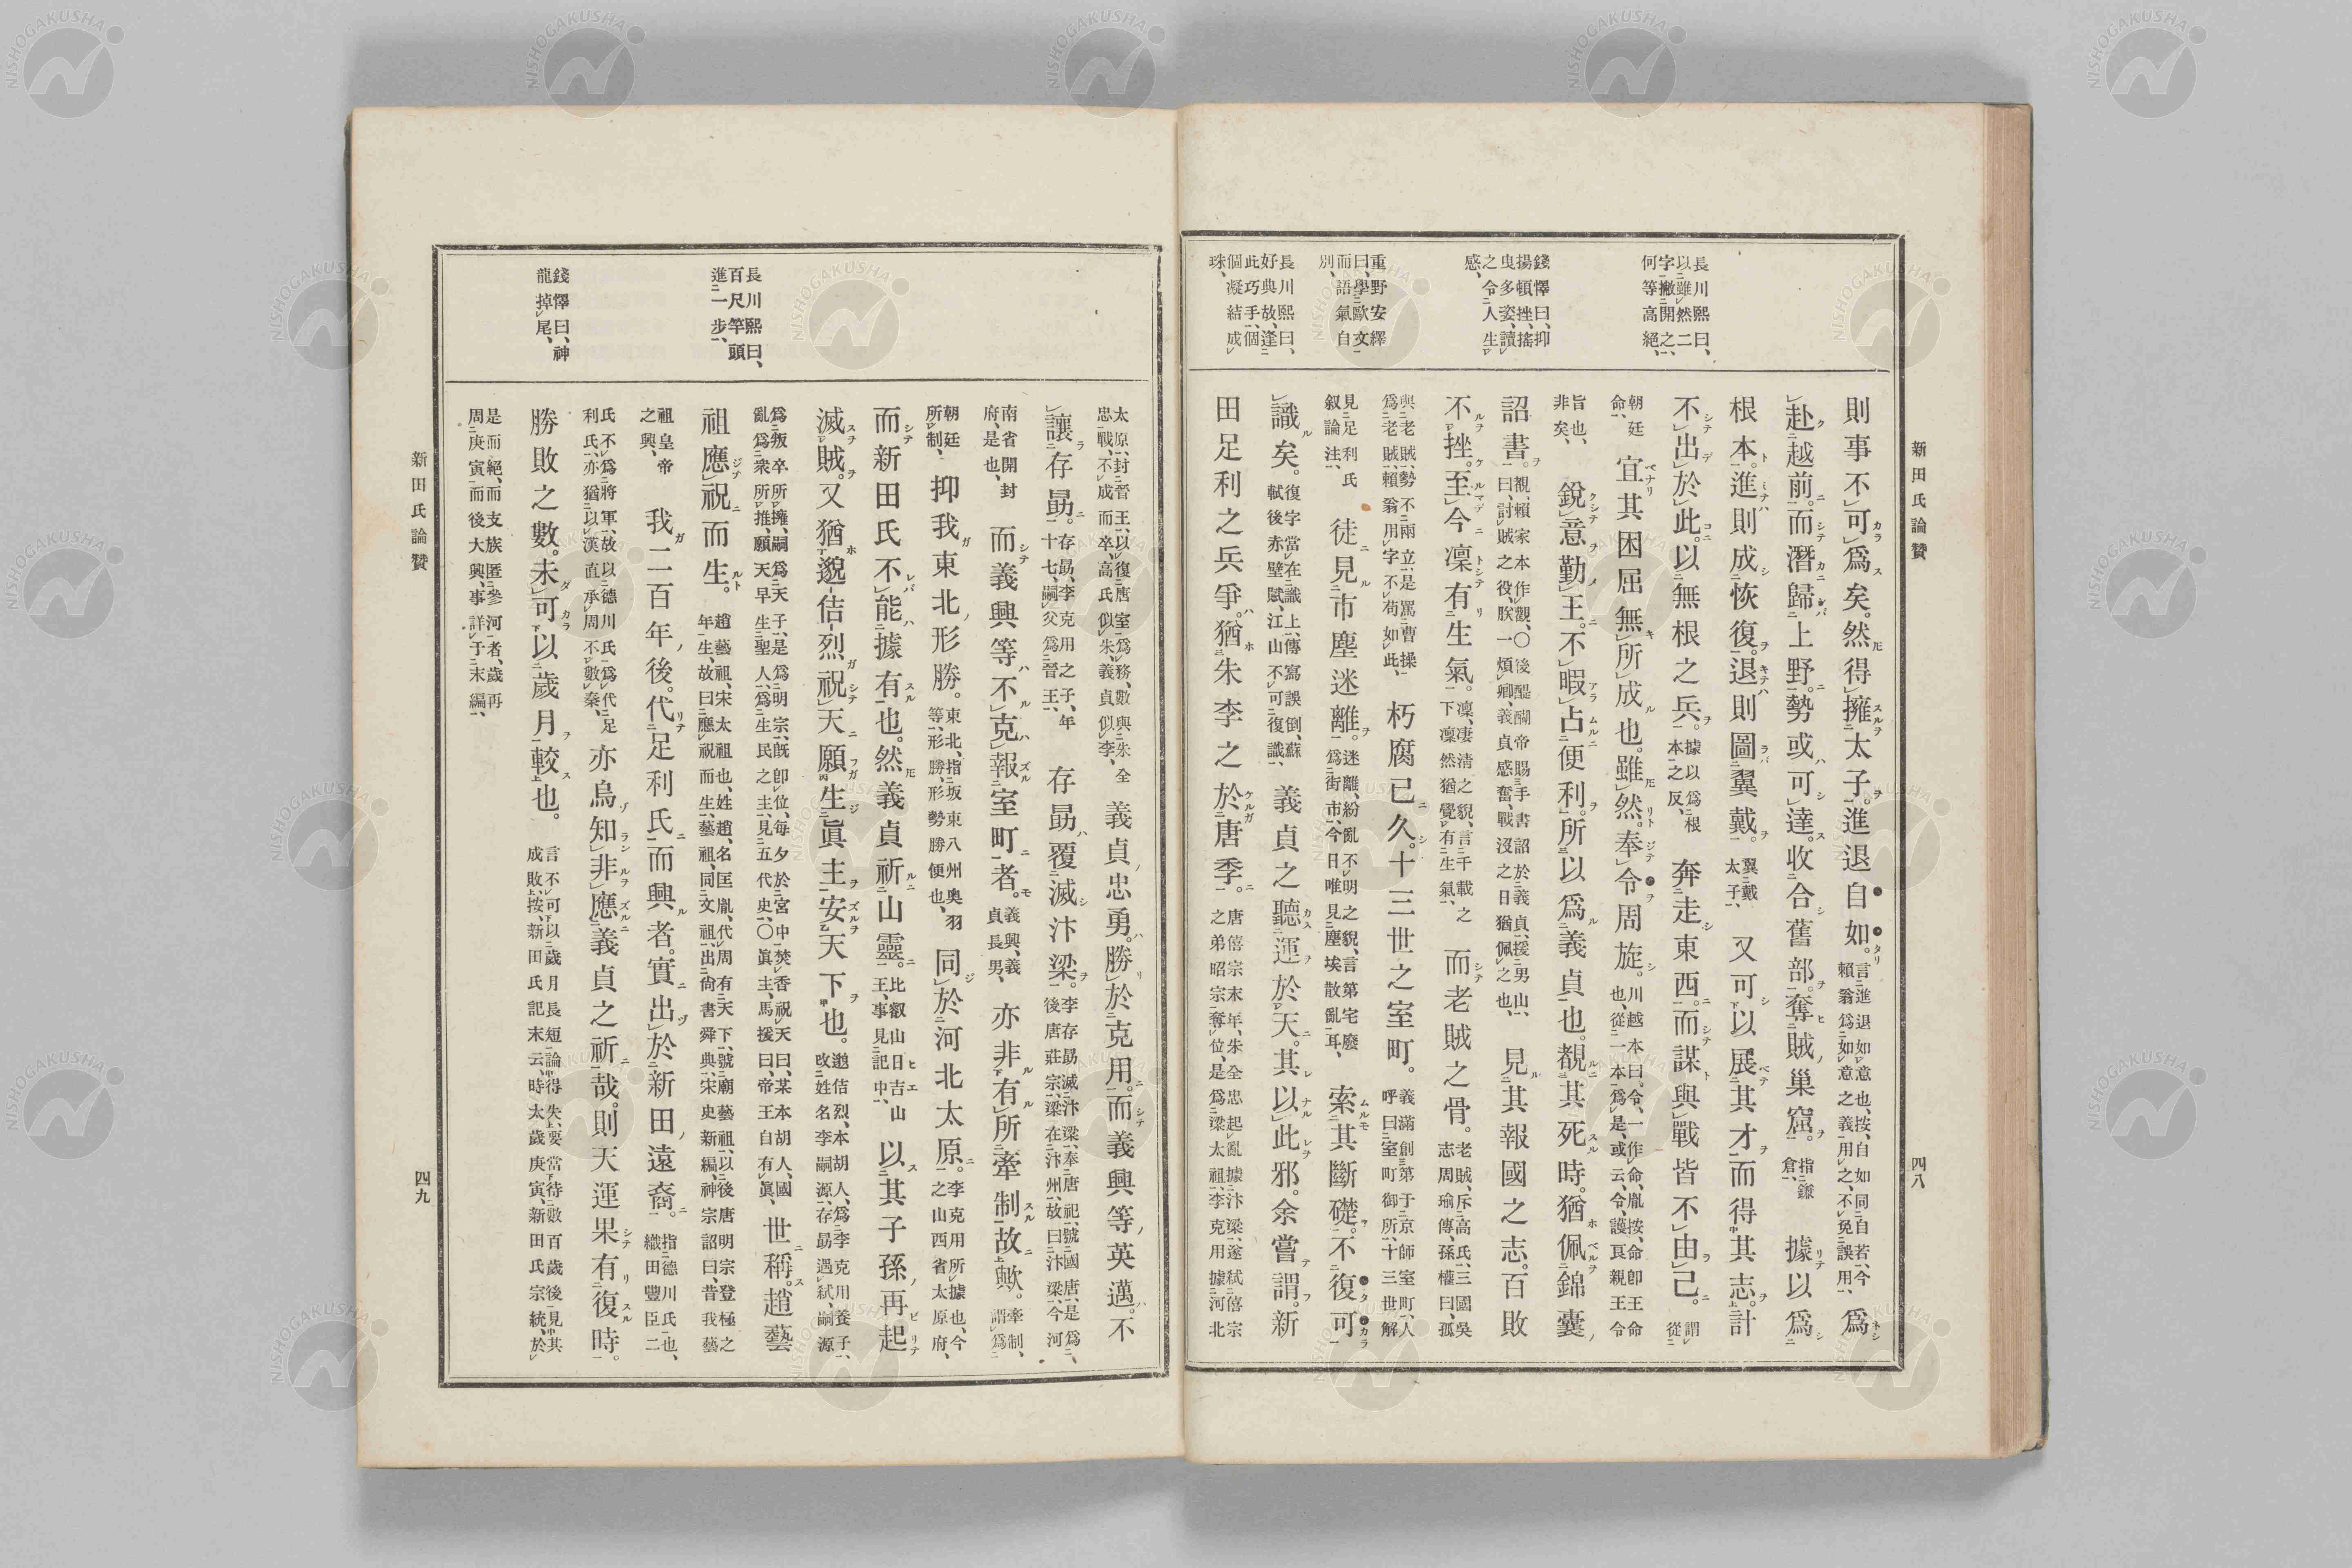 新田氏論贊
四八
長川熙曰、
以雖然二
字撇開之、
何等高絕、
錢懌曰、抑
揚頓挫、搖
曳多姿、讀
之令人生
感、
重野安繹
曰、學歐文
而語氣自
別、
長川熙曰、
好典故、逢
此巧手、個
個凝結成
珠、
則事不可爲矣。然得擁太子。進退自如。言進退如意也、按、自如同自若、今賴翁爲如意之義用之、不免誤用、爲
赴越前。而潛歸上野。勢或可達。收合舊部。奪賊巢窟。指鎌倉、據以爲
根本。進則成恢復。退則圖翼戴。翼戴太子、又可以展其才而得其志。計
不出於此。以無根之兵。據以爲根本之反、奔走東西。而謀與戰皆不由己。謂從
朝廷命、宜其困屈無所成也。雖然。奉令周旋。川越本曰、令、一作命、胤按、命卽王命也、從一本爲是、或云、令、護良親王令
旨也、非矣、銳意勤王。不暇占便利。所以爲義貞也。覩其死時。猶佩錦囊
詔書。覩、賴家本作觀、〇後醍醐帝賜手書詔於義貞、援男山、曰、討賊之役、朕一煩卿、義貞感奮、戰沒之日猶佩之也、見其報國之志。百敗
不挫。至今凛有生氣。凛、凄清之貌、言千載之下凛然猶覺有生氣、而老賊之骨。老賊、斥高氏、三國吳志周瑜傳、孫權曰、孤
與老賊、勢不兩立、是罵曹操爲老賊、賴翁用字不苟如此、朽腐已久。十三世之室町。義滿創第于京師室町、人呼曰室町御所、十三世解
見足利氏叙論注、徒見市塵迷離。迷離、紛亂不明之貌、言第宅廢爲街市、今日唯見塵埃散亂耳、索其斷礎。不復可
識矣。復字當在識上、傳寫誤倒、蘇軾後赤壁賦、江山不可復識、義貞之聽運於天。其以此邪。余嘗謂。新
田足利之兵爭。猶朱李之於唐季。唐僖宗末年、朱全忠起亂據汴梁、遂弑僖宗之弟昭宗奪位、是爲梁太祖、李克用據河北
太原、封晉王、以復唐室爲務、數與朱全忠戰、不成而卒、高氏似朱、義貞似李、義貞忠勇。勝於克用。而義興等英邁。不
讓存勗。存勗、李克用之子、年十七、嗣父爲晉王、存勗覆滅汴梁。李存勗滅汴梁、奉唐祀、號國唐、是爲後唐莊宗、梁在汴州、故曰汴梁、今河
南省開封府是也、而義興等不克報室町者。義興、義貞長男、亦非有所牽制故歟。牽制、謂爲
朝廷所制、抑我東北形勝。東北、指坂東八州奧羽等、形勝、形勢勝便也、同於河北太原。李克用所據也、今之山西省太原府、
而新田氏不能據有也。然義貞祈山靈。比叡山日吉山王、事見記中、以其子孫再起
滅賊。又猶邈佶烈祝天願生眞主安天下也。邈佶烈、本胡人、爲李克用養子、改姓名李嗣源、存勗遇弑、嗣源
爲叛卒所擁、嗣爲天子、是爲明宗、旣卽位、每夕於宮中焚香祝天曰、某本胡人、國亂爲衆所推、願天早生聖人、爲生民之主、見五代史、〇眞主、馬援曰、帝王自有眞、世稱。趙藝
祖應祝而生。趙藝祖、宋太祖也、姓趙、名匡胤、代周有天下、號廟藝祖、以後唐明宗登極之年生、故曰應祝而生、藝祖、同文祖、出尙書舜典、宋史新編、神宗詔曰、昔我藝
祖皇帝之興、我二百年後。代足利氏而興者。實出於新田遠裔。指德川氏也、織田豐臣二
氏不爲將軍、故以德川氏爲代足利氏、亦猶以漢直承周不數秦、亦烏知非應義貞之祈哉。則天運果有復時。
勝敗之數。未可以歲月較也。言不可以歲月長短論得失、要當待數百歲後見其成敗、按、新田氏記末云、時太歲庚寅、新田氏宗統、於
是而絕、而支族匿參河者、歲再周庚寅而後大興、事詳于末編、
長川熙曰、
百尺竿頭
進一步、
錢懌曰、神
龍掉尾、
新田氏論贊
四九